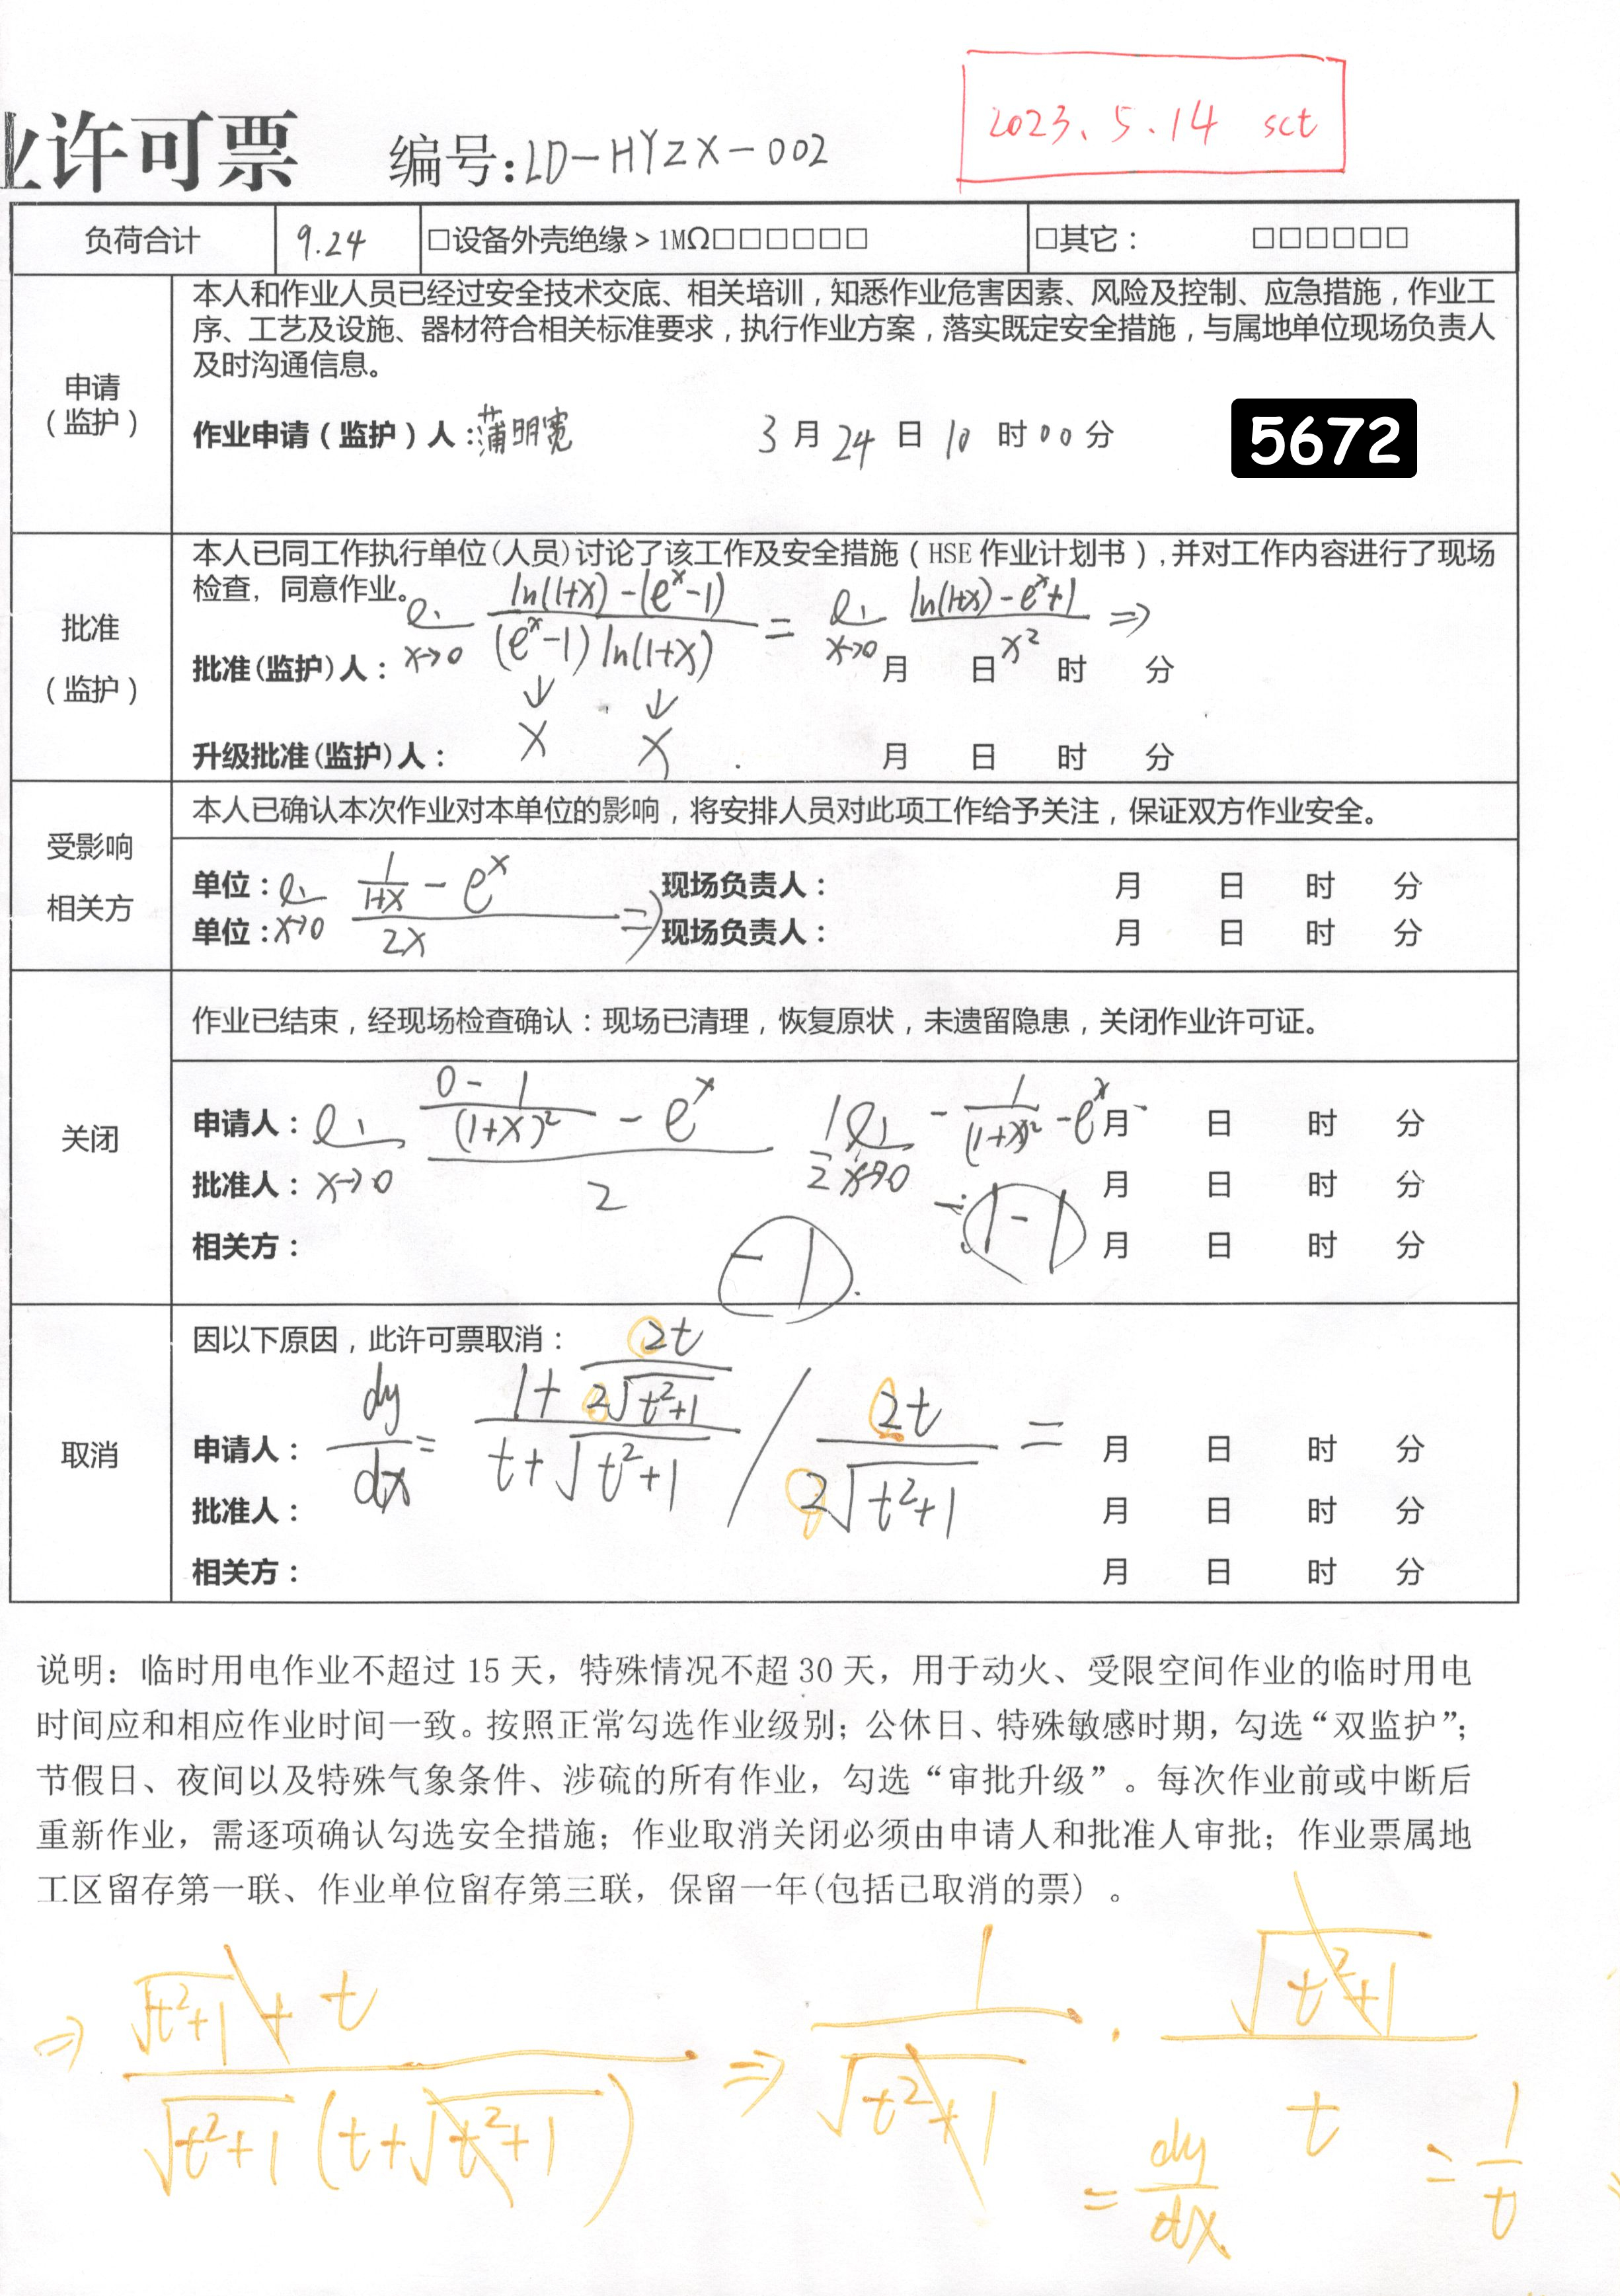 2023.5.14 sct
业许可票 编号:LD-HYZX-002
负荷合计 9.24 □设备外壳绝缘>1MΩ□□□□□□ □其它: □□□□□□
申请
(监护)
本人和作业人员已经过安全技术交底、相关培训,知悉作业危害因素、风险及控制、应急措施,作业工
序、工艺及设施、器材符合相关标准要求,执行作业方案,落实既定安全措施,与属地单位现场负责人
及时沟通信息。
作业申请(监护)人:蒲明宽 3月24日10时00分
5672
批准
(监护)
本人已同工作执行单位(人员)讨论了该工作及安全措施(HSE作业计划书),并对工作内容进行了现场
检查,同意作业。
ln(1+x)-(e^x-1) ln(1+x)-e^x+1
x→0 (e^x-1)ln(1+x) = x→0 x^2 ⇒
批准(监护)人: 月 日 时 分
↓ ↓
x x
升级批准(监护)人: 月 日 时 分
受影响
相关方
本人已确认本次作业对本单位的影响,将安排人员对此项工作给予关注,保证双方作业安全。
单位: 1/(1+x) - e^x 现场负责人: 月 日 时 分
单位:x→0 2x ⇒ 现场负责人: 月 日 时 分
关闭
作业已结束,经现场检查确认:现场已清理,恢复原状,未遗留隐患,关闭作业许可证。
申请人: (0-1)/(1+x)^2 - e^x 1/2 - 1/(1+x)^2 - e^x 月 日 时 分
批准人: x→0 2 x→0 月 日 时 分
相关方: -1 -1-1 月 日 时 分
取消
因以下原因,此许可票取消:
dy/dx = (1+2t/(2√(t^2+1)))/(t+√(t^2+1)) / 2t/(2√(t^2+1)) =
申请人: 月 日 时 分
批准人: 月 日 时 分
相关方: 月 日 时 分
说明:临时用电作业不超过15天,特殊情况不超30天,用于动火、受限空间作业的临时用电
时间应和相应作业时间一致。按照正常勾选作业级别;公休日、特殊敏感时期,勾选“双监护”;
节假日、夜间以及特殊气象条件、涉硫的所有作业,勾选“审批升级”。每次作业前或中断后
重新作业,需逐项确认勾选安全措施;作业取消关闭必须由申请人和批准人审批;作业票属地
工区留存第一联、作业单位留存第三联,保留一年(包括已取消的票)。
⇒ (√(t^2+1)+t)/(√(t^2+1)(t+√(t^2+1))) ⇒ 1/√(t^2+1) · √(t^2+1)/t
= dy/dx = 1/t